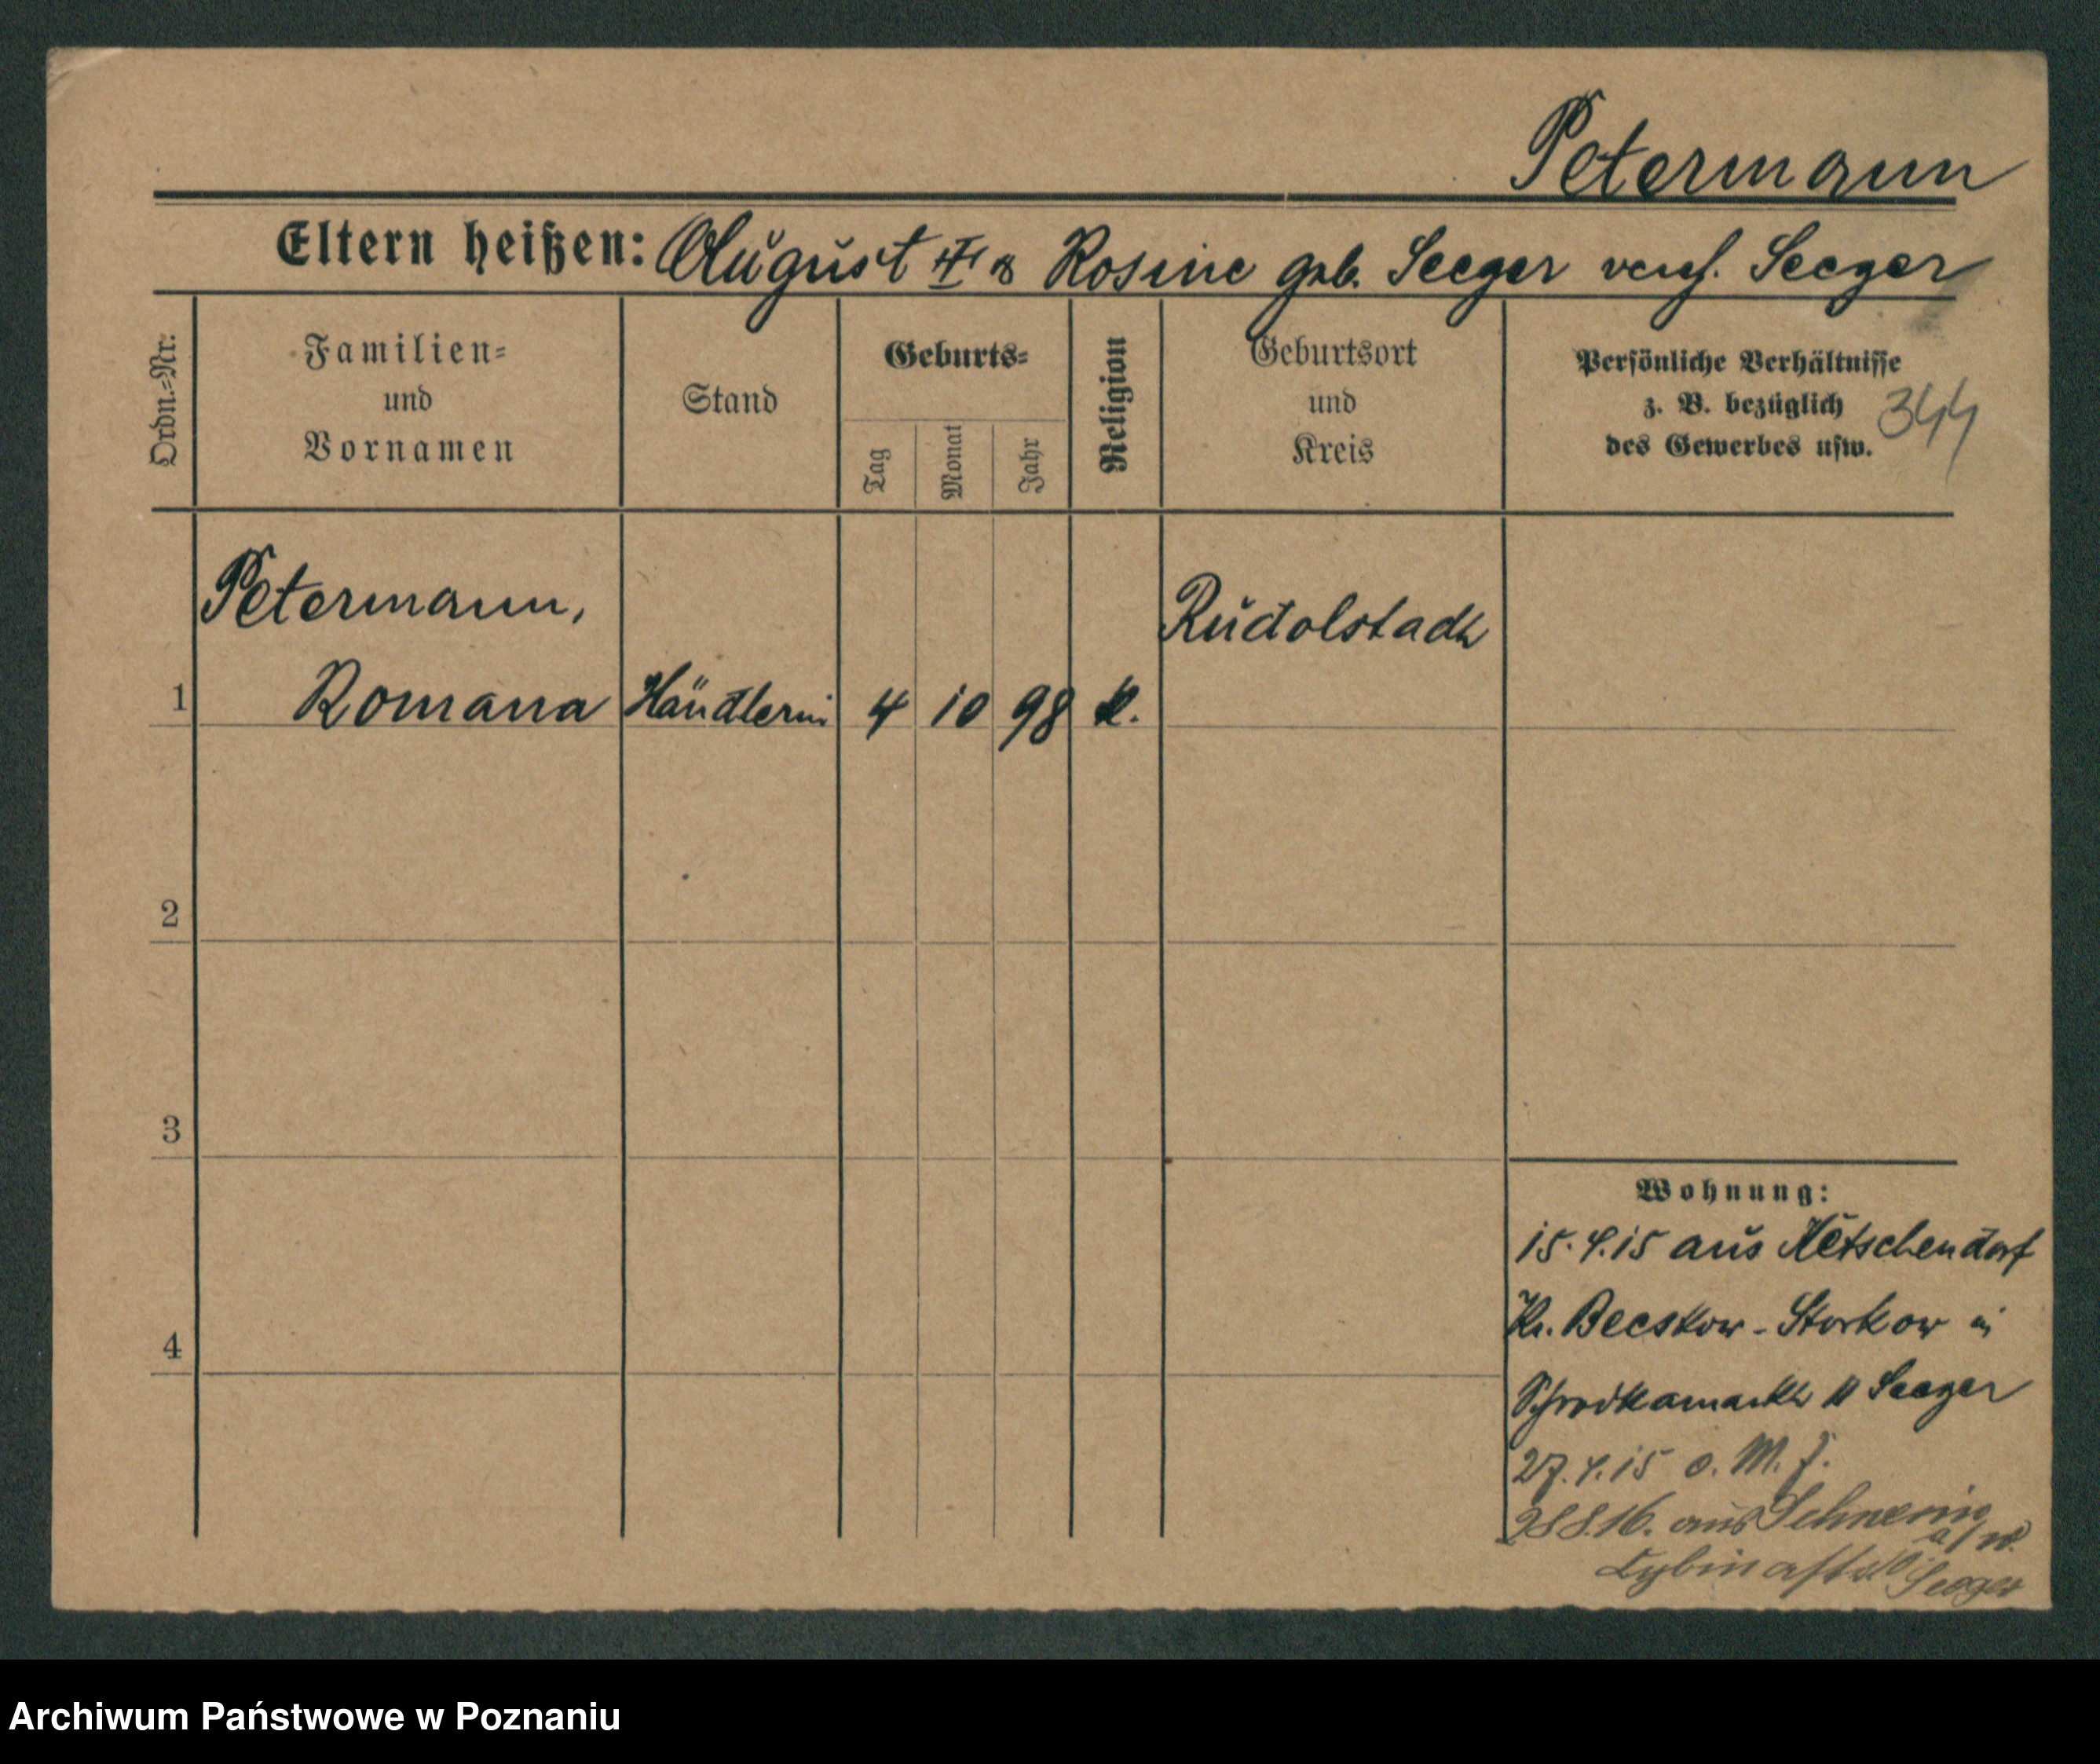 Petermann
Eltern heißen: August II & Rosine geb. Seeger verh. Seeger
Ordn.=Nr:
Familien=
und
Vornamen
Stand
Geburts=
Tag
Monat
Jahr
Religion
Geburtsort
und
Kreis
Persönliche Verhältnisse
z. B. bezüglich
des Gewerbes usw.
344
Petermann,
1 Romana Händlerin 4 10 98 k. Rudolstadt
2
3
4
Wohnung:
15.4.15 aus Ketschendorf
Kr. Beeskow - Storkow in
Schrodkamarkt Seeger
27.4.15 o. M. f.
28.8.16. aus Schwerin a/W.
Seeger
Archiwum Państwowe w Poznaniu